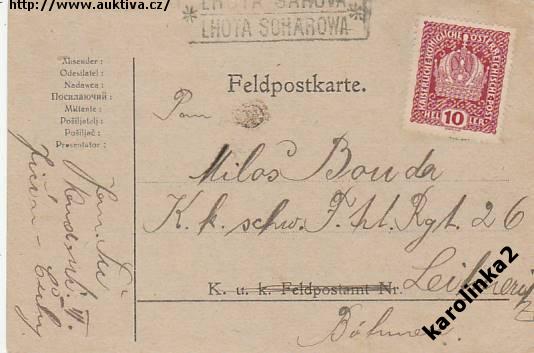 http://www.auktiva.cz/
LHOTA ŠÁROVA
LHOTA SCHAROWA
Absender :
Odesílatel :
Nadawca :
Посилаючий :
Mittente :
Pošiljatelj :
Pošiljač :
Presentator :
Feldpostkarte.
KAISERLICHE KÖNIGLICHE ÖSTERREICHISCHE POST
HEL 10 LER
Pan
Milos Bouda
K. k. schw. F. ht. Rgt. 26
K. u. k. Feldpostamt Nr.
Leitmeritz
Böhmen
Jičín
karolinka2